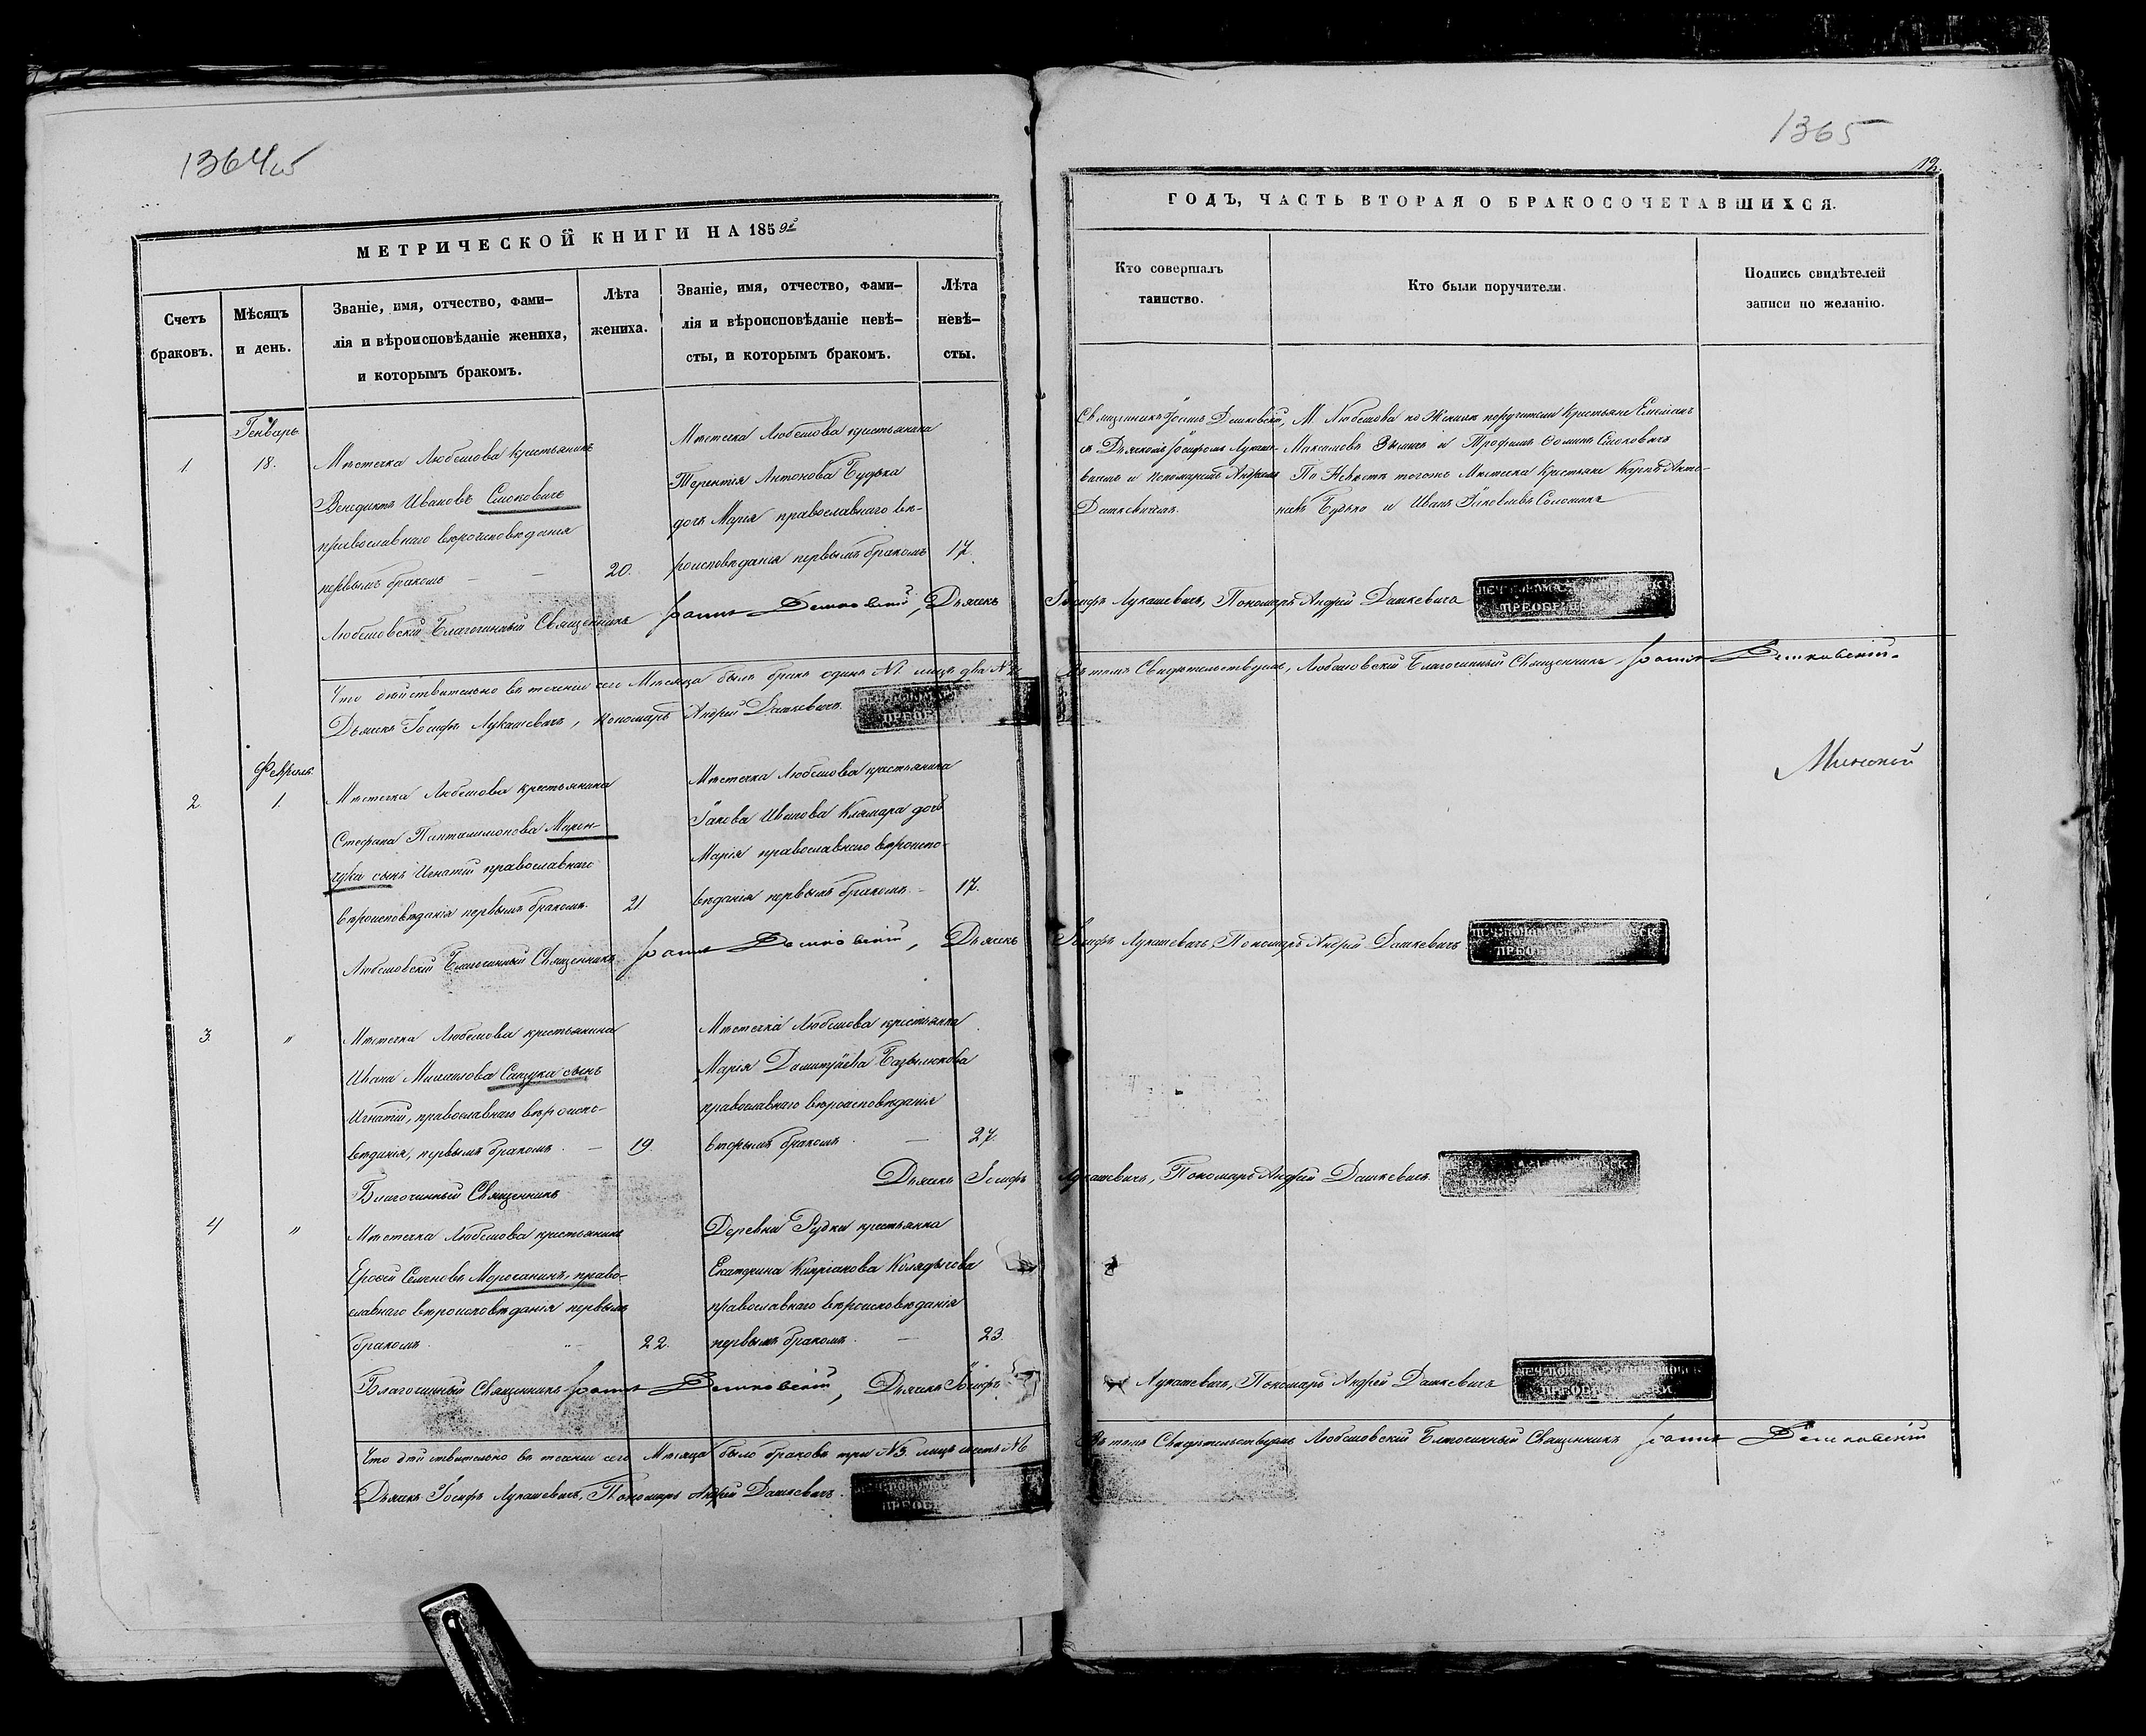 1364об
МЕТРИЧЕСКОЙ КНИГИ НА 1859й
Счетъ
браковъ.
Мѣсяцъ
и день.
Званіе, имя, отчество, фами-
лія и вѣроисповѣданіе жениха,
и которымъ бракомъ.
Лѣта
жениха.
Званіе, имя, отчество, фами-
лія и вѣроисповѣданіе невѣ-
сты, и которымъ бракомъ.
Лѣта
невѣ-
сты.
Генварь
1
18.
Мѣстечка Любешова крестьянинъ
Венедиктъ Ивановъ Смоковичъ
православнаго вѣроисповѣданія
первымъ бракомъ
20.
Мѣстечка Любешова крестьянина
Терентія Антонова Будька
дочь Марія православнаго вѣ-
роисповѣданія первымъ бракомъ
17.
Любешовскій Благочинный Священникъ Іоаннъ Дешковскій, Дьячекъ
Что дѣйствительно въ теченіи сего Мѣсяца былъ бракъ одинъ №1. лицъ два №2
Дьячекъ Іосифъ Лукашевичъ, пономарь Андрей Дашкевичъ.
Февраль
2.
1.
Мѣстечка Любешова крестьянина
Стефана Панталимонова Марен-
чука сынъ Игнатій православнаго
вѣроисповѣданія первымъ бракомъ.
21.
Мѣстечка Любешова крестьянина
Іакова Иванова Клямара дочь
Марія православнаго вѣроиспо-
вѣданія первымъ бракомъ.
17.
Любешовскій Благочинный Священникъ Іоаннъ Дешковскій, Дьячекъ
3.
"
Мѣстечка Любешова крестьянина
Ивана Михайлова Сацука сынъ
Игнатій, православнаго вѣроиспо-
вѣданія, первымъ бракомъ.
19.
Мѣстечка Любешова крестьянка
Марія
православнаго вѣроисповѣданія
вторымъ бракомъ
27.
Благочинный Священникъ
Дьячекъ Іосифъ
4
"
Мѣстечка Любешова крестьянинъ
Ерофей Семеновъ право-
славнаго вѣроисповѣданія первымъ
бракомъ.
22.
Деревни Рудки крестьянка
Екатерина Кипріанова
православнаго вѣроисповѣданія
первымъ бракомъ.
23.
Благочинный Священникъ Іоаннъ Дешковскій, Дьячекъ Іосифъ
Что дѣйствительно въ теченіи сего Мѣсяца было браковъ три №3. лицъ шесть №6
Дьячекъ Іосифъ Лукашевичъ, Пономарь Андрей Дашкевичъ.
1365
12
ГОДЪ, ЧАСТЬ ВТОРАЯ О БРАКОСОЧЕТАВШИХСЯ.
Кто совершалъ
таинство.
Кто были поручители.
Подпись свидѣтелей
записи по желанію.
Священникъ Іоаннъ Дешковскій,
съ Дьячкомъ Іосифомъ Лукаше-
вичемъ и пономаремъ Андреемъ
Дашкевичемъ.
М. Любешова по Женихѣ поручители Крестьяне
Максимовъ и Трофимъ Ѳоминъ Смоковичъ
По Невѣстѣ тогожъ Мѣстечка Крестьяне Карпъ Анто-
новъ Будько и Иванъ Яковлевъ
Іосифъ Лукашевичъ, Пономарь Андрей Дашкевичъ
Въ томъ Свидѣтельствуемъ, Любешовскій Благочинный Священникъ Іоаннъ Дешковскій.
Іосифъ Лукашевичъ, Пономарь Андрей Дашкевичъ
Лукашевичъ, Пономарь Андрей Дашкевичъ.
Лукашевичъ, Пономарь Андрей Дашкевичъ
Въ томъ Свидѣтельствуемъ Любешовскій Благочинный Священникъ Іоаннъ Дешковскій